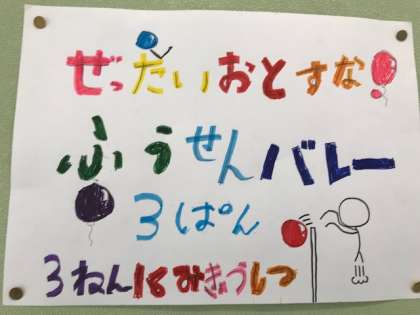 ぜったいおとすな!
ふうせんバレー
3ぱん
3ねん1くみきょうしつ